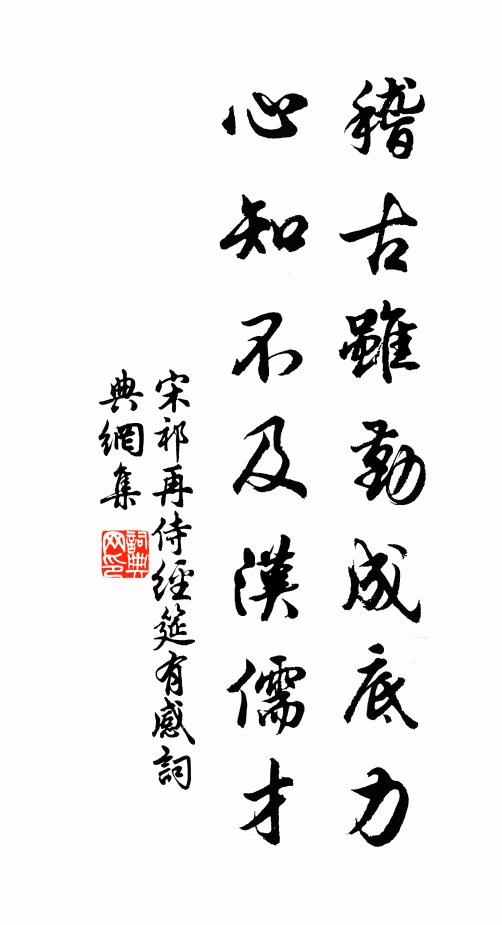 稽古雖勤成底力
心知不及漢儒才
宋祁再侍經筵有感詞
典網集
詞典
网印